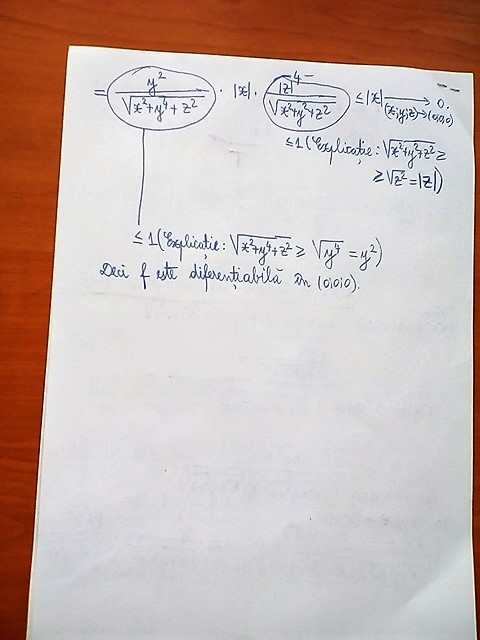 = y²/√(x²+y⁴+z²) · |x| · |z|/√(x²+y²+z²) ≤ |x| ⟶ 0.
(x;y;z)→(0;0;0)
≤1 (Explicație: √(x²+y²+z²) ≥
≥ √z² = |z|)
≤1 (Explicație: √(x²+y⁴+z²) ≥ √y⁴ = y²)
Deci f este diferențiabilă în (0;0;0).